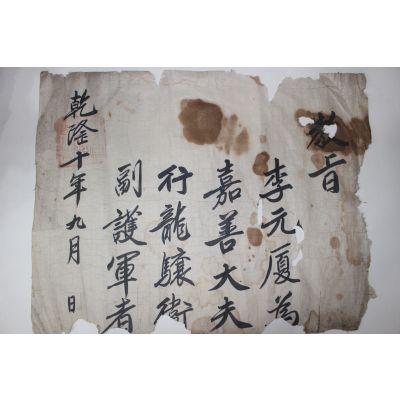 教旨
李元廈為
嘉善大夫
行龍驤衛
副護軍者
乾隆十年九月 日